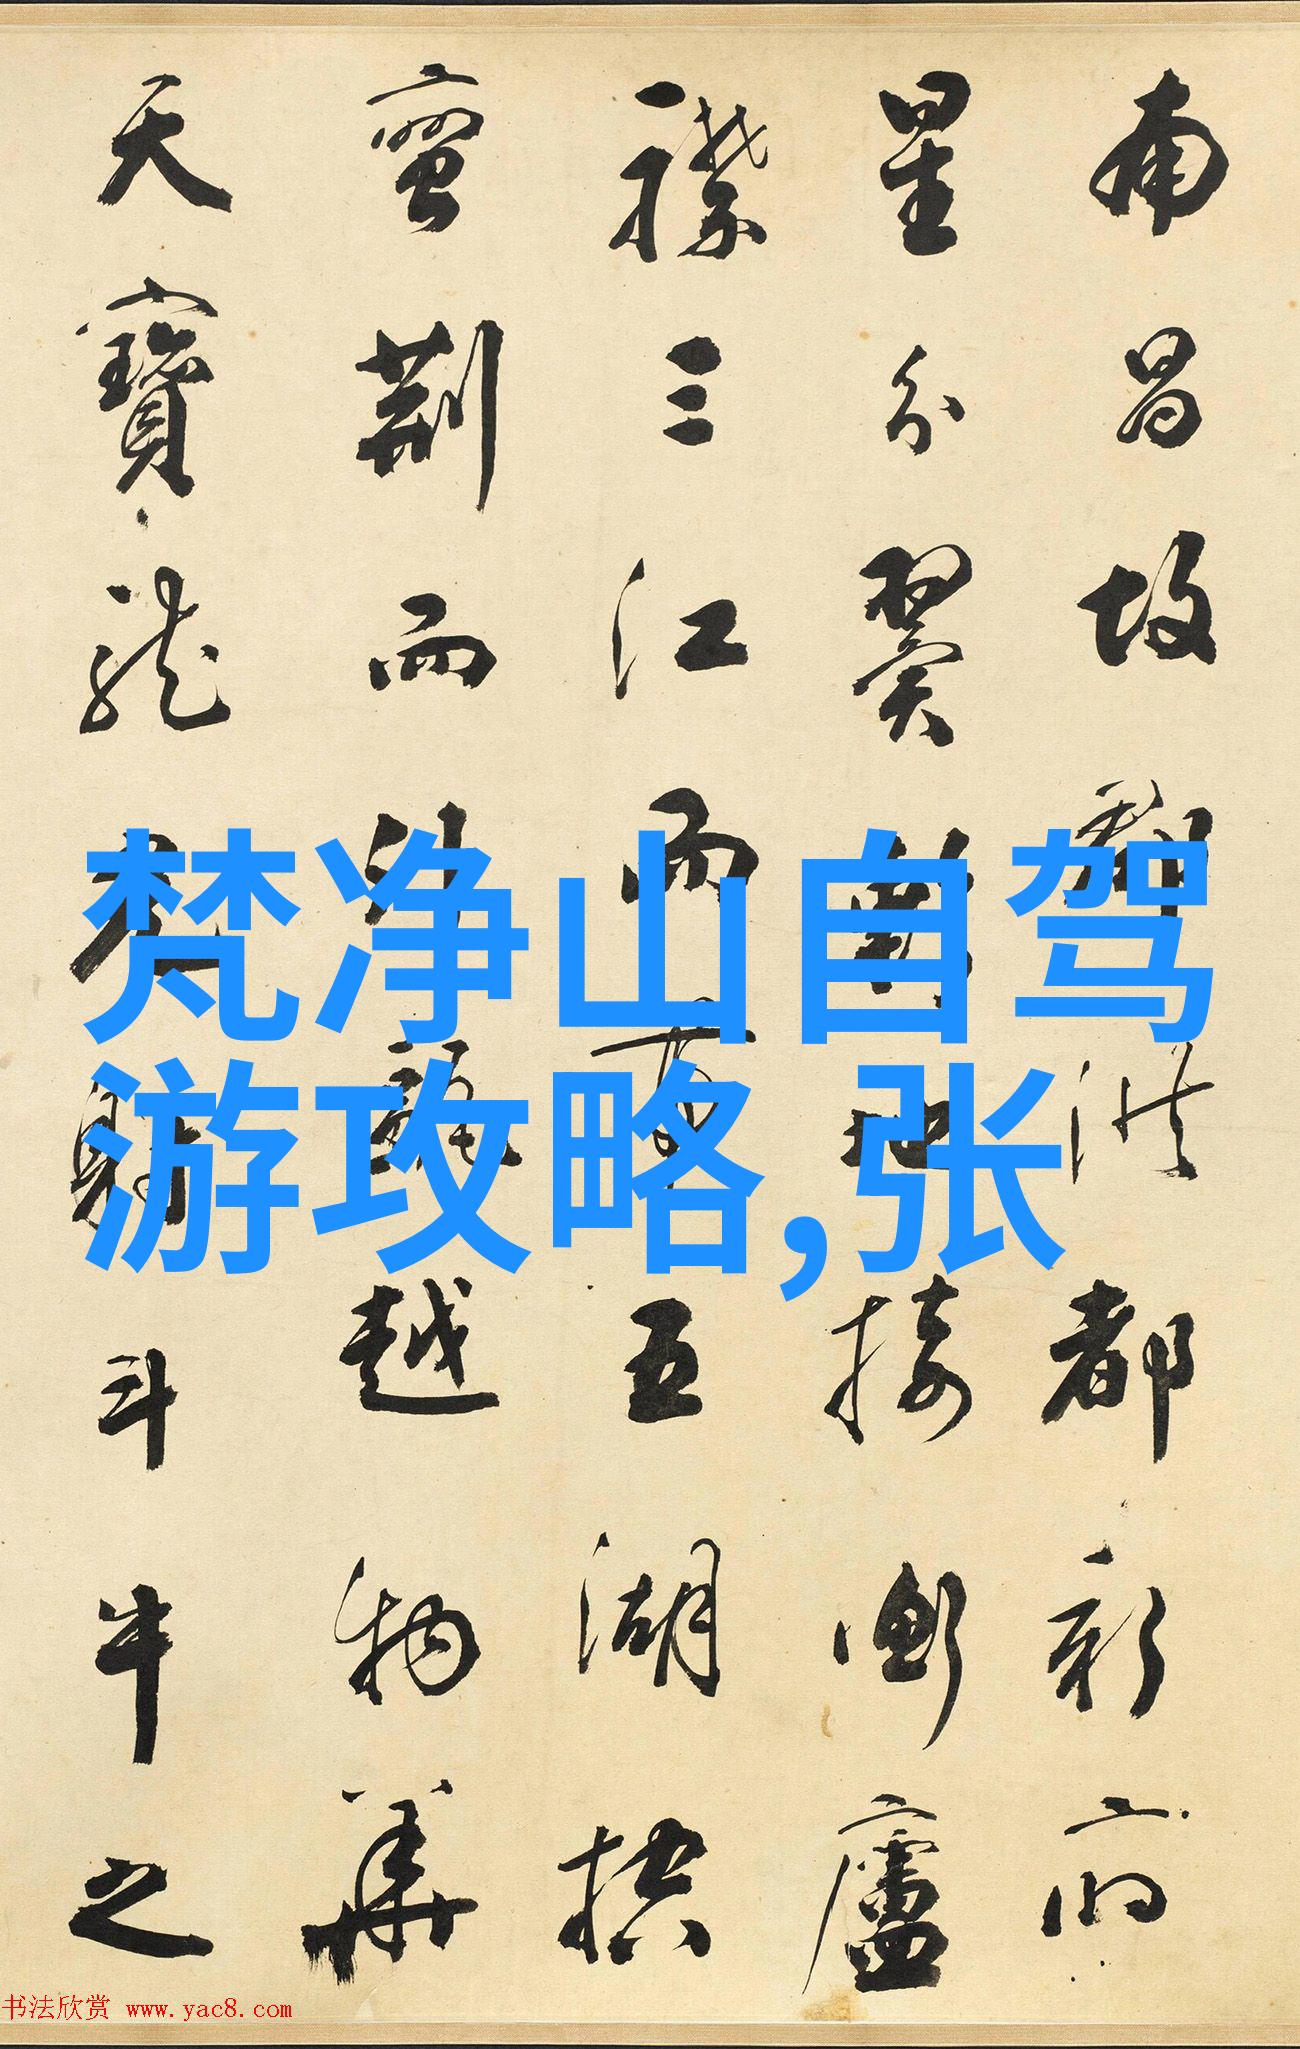 南昌故郡洪都新府
星分翼軫地接衡廬
襟三江而帶五湖控
蠻荆而引甌越物華
天寶龍光射斗牛之
梵净山自驾
游攻略,张
书法欣赏 www.yac8.com